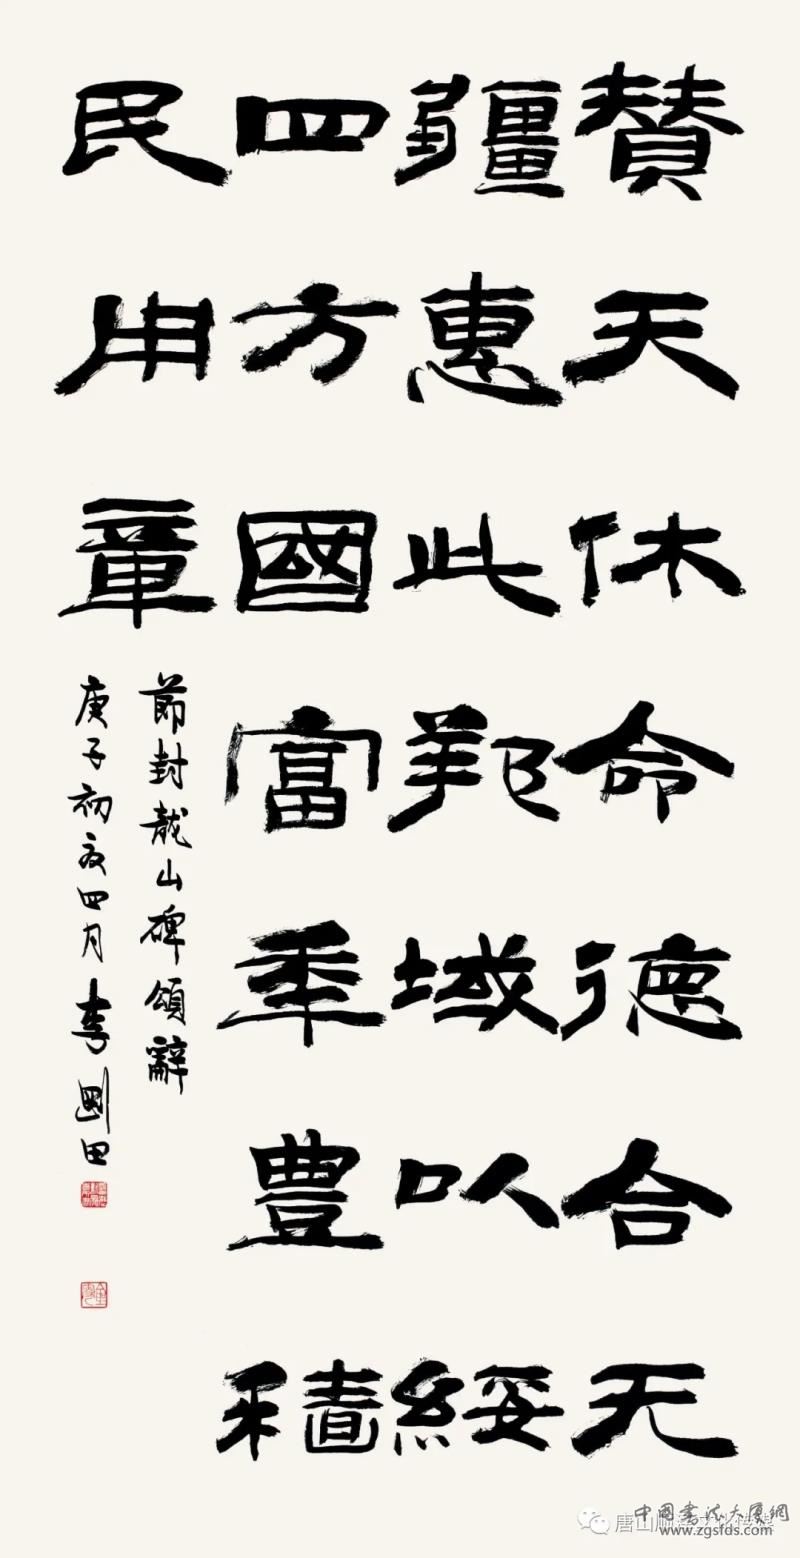 賛天休命德合无
疆惠此邦域以綏
四方國富年豊穡
民用章
節封龍山碑頌辭
庚子初夏四月李剛田
中國書法大厦網
唐山
www.zgsfds.com